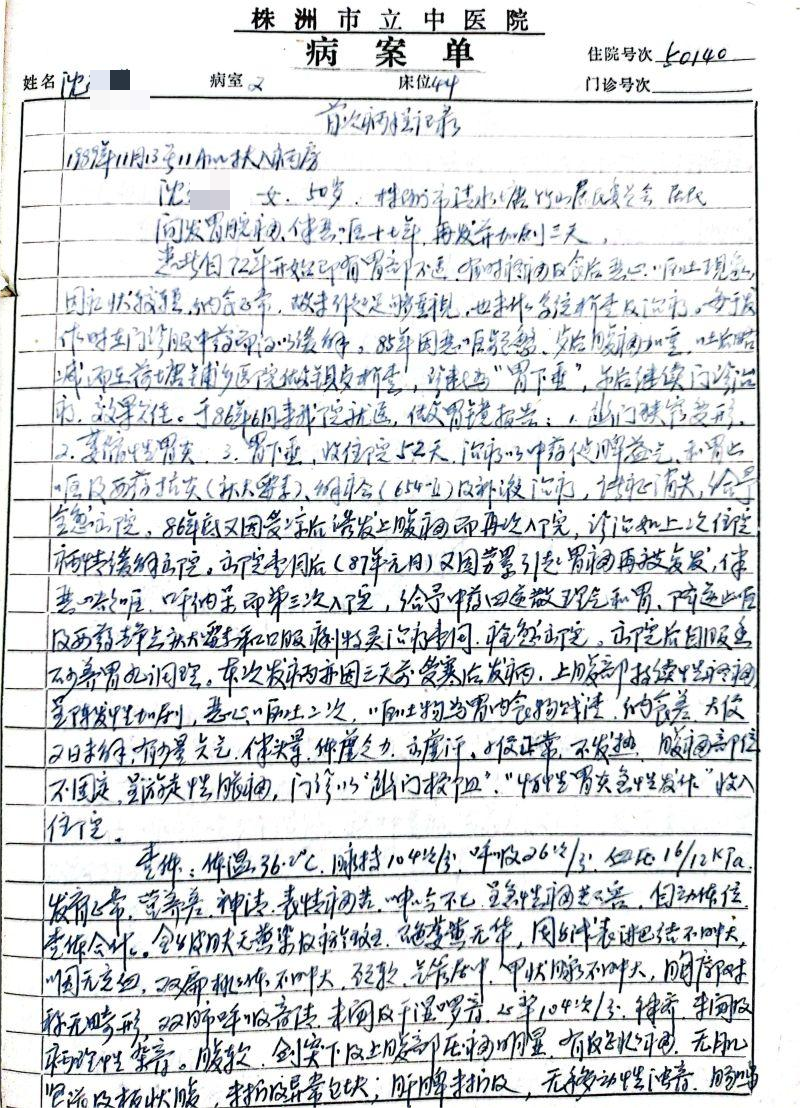 株洲市立中医院
病案单
住院号次 50140
姓名 沈 病室 2 床位 44 门诊号次
首次病程记录
1989年11月13号11Am扶入病房
沈 女、50岁、株洲市清水塘竹山居民委员会 居民
间发胃脘痛、伴恶呕十七年，再发并加剧三天，
患者自72年开始即有胃部不适，有时疼痛及食后恶心呕吐现象，
因症状较轻，纳食正常，故未引起足够重视，也未作系统检查及治疗。每于发
作时在门诊服中药而得以缓解。85年因恶呕频繁、步后腹痛加重，吐后略
减而在荷塘铺乡医院做钡透检查，诊断为“胃下垂”，尔后继续门诊治
疗，效果欠佳。于86年6月来我院就医，做胃镜报告：1、幽门狭窄变形，
2、萎缩性胃炎 3、胃下垂，收住院52天，治疗以中药健脾益气，和胃止
呕及西药抗炎（庆大霉素）、解痉（654-Ⅱ）及补液治疗，诸症消失，给予
痊愈出院，86年底又因受凉后诱发上腹痛而再次入院，诊治如上次住院
病情缓解出院。出院壹月后（87年元月）又因劳累引起胃痛再被复发，伴
恶心呕，呆而第三次入院，给予中药四逆散理气和胃、降逆止呕
及西药静点庆大霉素和口服痢特灵治疗壹月，痊愈出院。出院后自服
养胃丸调理。本次发病亦因三天前受寒后发病，上腹部持续性疼痛
呈阵发性加剧，恶心呕吐二次，呕吐物为胃内食物残渣，纳食差 大便
2日未解，有少量矢气，伴头晕、体虚乏力、出虚汗。小便正常，不发热，腹痛部位
不固定，呈游走性胀痛，门诊以“幽门梗阻”、“慢性胃炎急性发作”收入
住院。
查体：体温36.2℃ 脉搏104次/分，呼吸26次/分，血压16/12KPa
发育正常，营养差，神清，表情痛苦，呻吟不已，呈急性痛苦容，自动体位
查体合作。全身皮肤无黄染及瘀斑，萎黄无华，周身浅表淋巴结不肿大，
咽无充血，双扁桃体不肿大，颈软，气管居中，甲状腺不肿大，胸廓对
称无畸形，双肺呼吸音清，未闻及干湿啰音，心率104次/分，律齐，未闻及
病理性杂音。腹软，剑突下及上腹部压痛明显，有反跳痛，无肌
紧张及板状腹，未扪及异常包块；肝脾未扪及，无移动性浊音，肠鸣